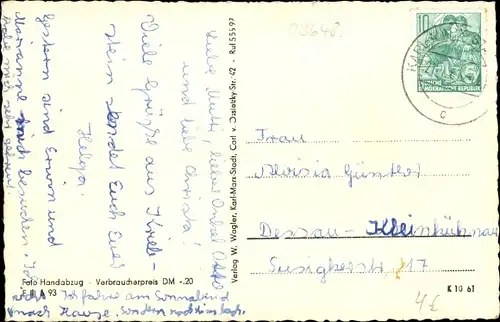 Liebe Mutti, lieber Onkel Otto
und liebe Christa!
Viele Grüße aus Krieb-
stein sendet Euch Eure
Helga.
Gestern sind Erwin und
Marianne besuchen. Ich
habe mich sehr gefreut.
nicht Ich fahre am Sonnabend
nach Hause, sondern
Foto Handabzug - Verbraucherpreis DM -.20
93
Verlag W. Wagler, Karl-Marx-Stadt, Carl v. Ossietzky-Str. 42 - Ruf 55597
23648
10
DEUTSCHE
DEMOKRATISCHE REPUBLIK
KARL-MARX-
c
Frau
Aloisia Günther
Dessau-Kleinkühnau
17
K 10 61
4£